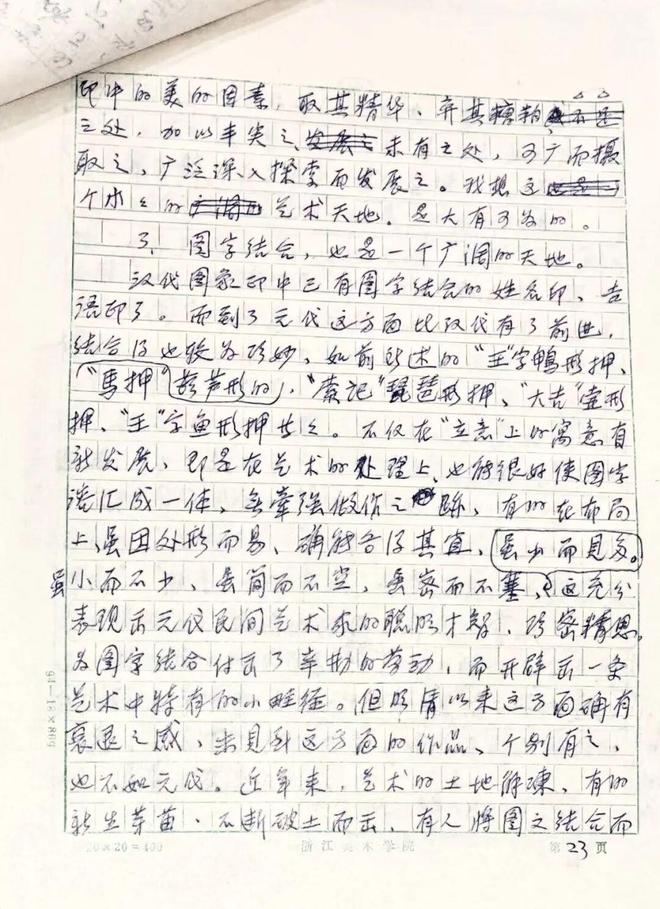 印中的美的因素，取其精华、弃其糟粕
之处，加以丰实之、未有之处，可广而摄
取之，广泛深入探索而发展之。我想这
个小之的艺术天地，是大有可为的。
3、图字结合，也是一个广阔的天地。
汉代图象印中已有图字结合的姓名印、吉
语印了。而到了元代这方面比汉代有了前进，
结合得也较为巧妙，如前所述的"王"字鸭形押、
"馬押"葫芦形的，"记"琵琶形押、"大吉"壶形
押、"王"字鱼形押廿之。不仅在"立意"上的寓意有
新发展，即是在艺术的处理上，也能很好使图字
汇成一体，无牵强做作之跡，有的在布局
上，虽因处形而易，确能各得其宜，虽少而見多。
虽小而不少，虽简而不空，虽密而不塞，这充分
表现出元代民间艺术家的聪明才智，巧密精思。
为图字结合付出了辛勤的劳动，而开辟出一条
艺术中特有的小畦径。但明清以来这方面确有
衰退之感，未見到这方面的作品、个别有之，
也不如元代。近年来，艺术的土地解凍，有的
新生芽苗，不断破土而出，有人将图文结合而
20×20=400
浙江美术学院
第23页